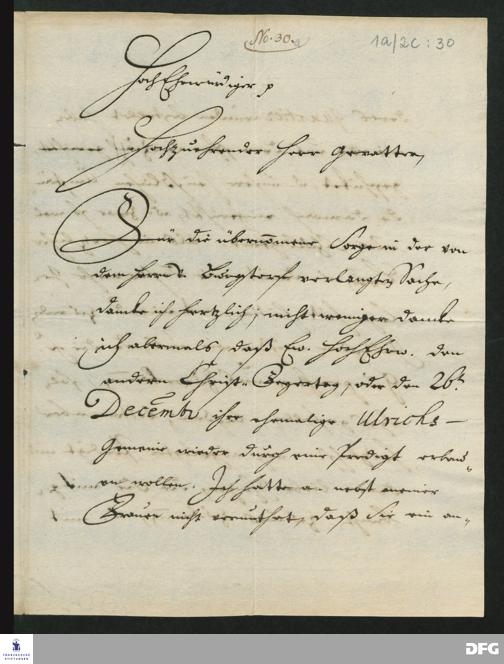 No. 30.
1a/2C : 30
HochEhrwürdiger p
Hochzuehrender Herr Gevatter,
Für die übernommene Sorge in der von
dem Herrn v. verlangten Sache,
danke ich hertzlich; nicht weniger danke
ich abermals, daß Ew. HochEhrw. den
andern Christ-Feyertag, oder den 26t.
Decembr ihre ehemalige Ulrichs-
Gemeine wieder durch eine Predigt erbau-
en wollen. Ich hatte nebst meiner
Frauen nicht vermuthet, daß Sie ein an-
FRANCKESCHE
STIFTUNGEN
DFG